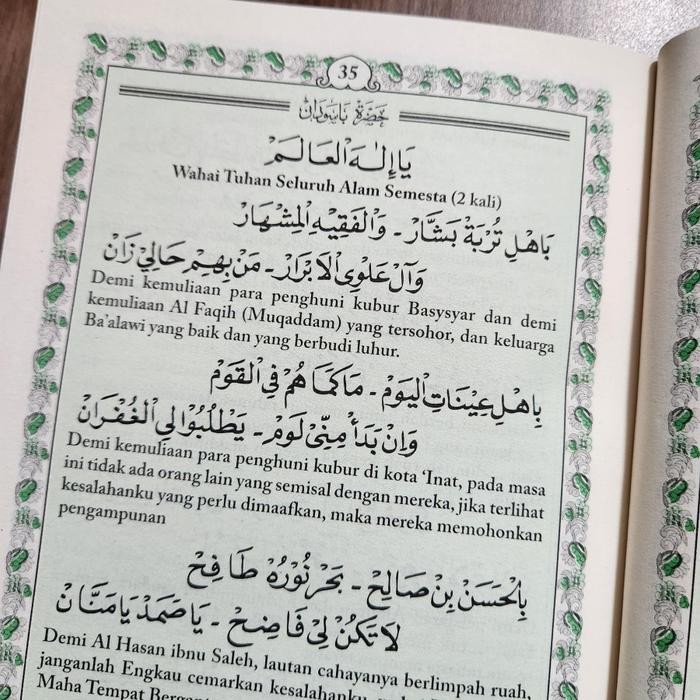 35
حَضْرَة بَاسَوْدَانْ
يَا إِلٰـهَ الْعَـالَـمْ
Wahai Tuhan Seluruh Alam Semesta (2 kali)
بَاهْلِ تُرْبَةْ بَشَّارْ - وَالْفَقِيْهِ الْمِشْهَارْ
وَآلِ عَلْوِي الْاَبْرَارْ - مَنْ بِهِمْ حَالِيْ زَانْ
Demi kemuliaan para penghuni kubur Basysyar dan demi
kemuliaan Al Faqih (Muqaddam) yang tersohor, dan keluarga
Ba'alawi yang baik dan yang berbudi luhur.
بِاهْلِ عِيْنَاتِ الْيَوْمْ - مَا كَمَا هُمْ فِي الْقَوْمْ
وَاِنْ بَدَأْ مِنِّيْ لَوْمْ - يَطْلُبُوْا لِي الْغُفْرَانْ
Demi kemuliaan para penghuni kubur di kota 'Inat, pada masa
ini tidak ada orang lain yang semisal dengan mereka, jika terlihat
kesalahanku yang perlu dimaafkan, maka mereka memohonkan
pengampunan
بِالْحَسَنْ بِنْ صَالِحْ - بَحْرُ نُوْرُهْ طَافِحْ
لَا تَكُنْ لِيْ فَاضِحْ - يَا صَمَدْ يَا مَنَّانْ
Demi Al Hasan ibnu Saleh, lautan cahayanya berlimpah ruah,
janganlah Engkau cemarkan kesalahanku,
Maha Tempat